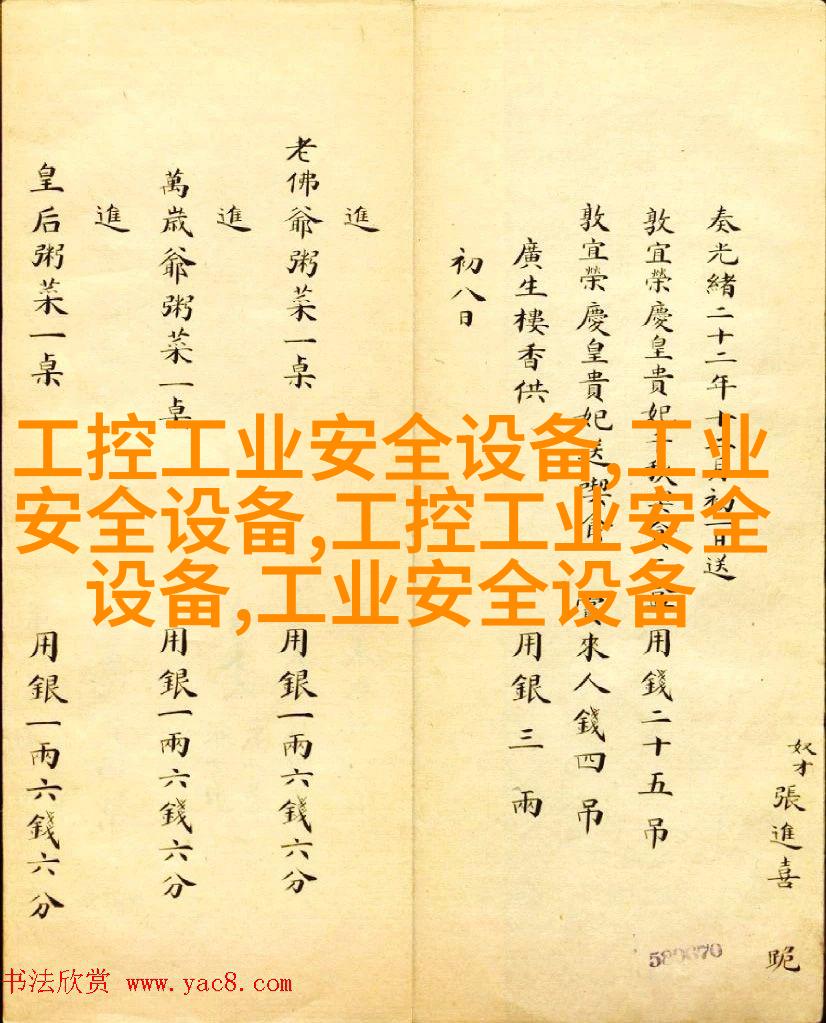 奴才張進喜 跪
奏光緒二十二年十月初日送
敦宜榮慶皇貴妃 用錢二十五吊
敦宜榮慶皇貴妃送喫食 賞來人錢四吊
廣生樓香供 用銀三兩
初八日
進
老佛爺粥菜一桌 用銀一兩六錢六分
進
萬歲爺粥菜一桌 用銀一兩六錢六分
進
皇后粥菜一桌 用銀一兩六錢六分
工控工业安全设备,工业
安全设备,工控工业安全
设备,工业安全设备
书法欣赏 www.yac8.com